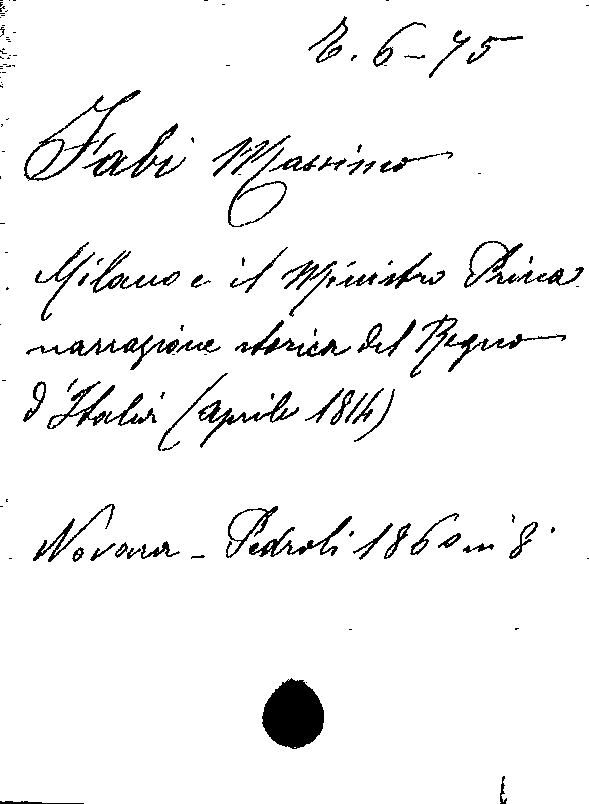 E. 6-75
Fabi Massimo
Milano e il Ministro Prina
narrazione storica del Regno
d'Italia (aprile 1814)
Novara - Pedroli 1860 in 8°